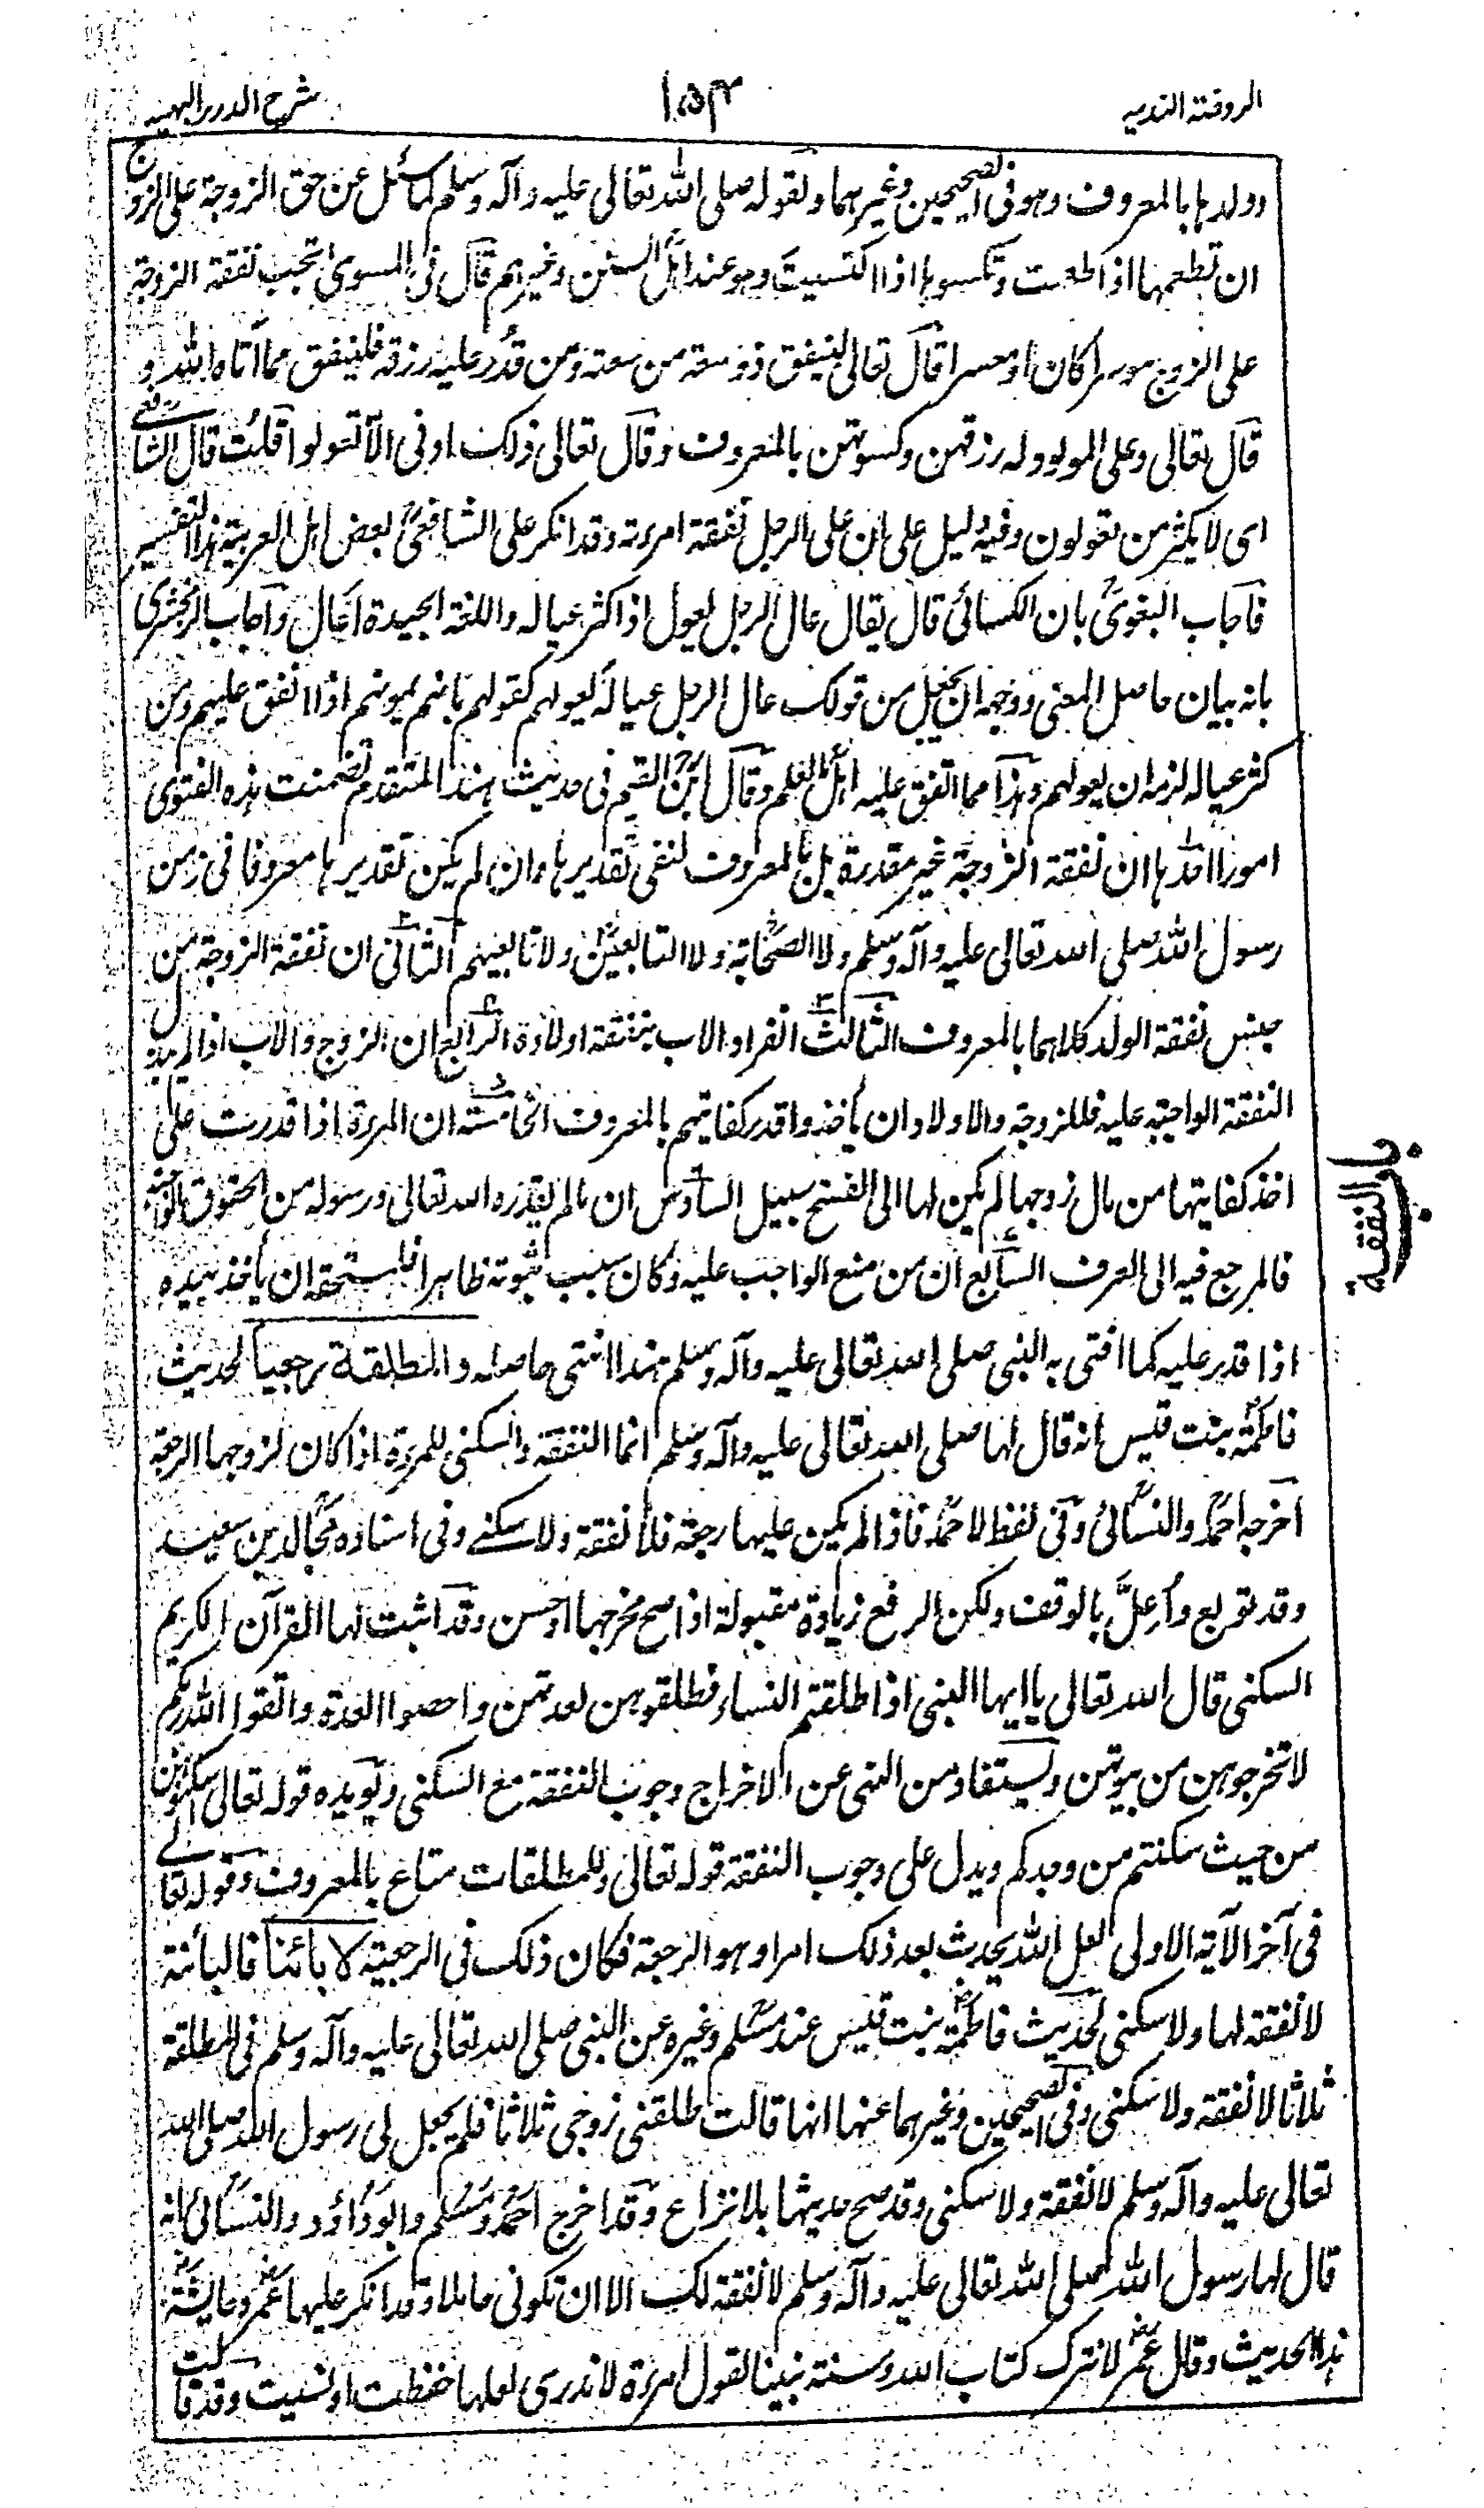 الروضة الندية
١٥٤
شرح الدرر البهية
وولدها بالمعروف وهو فى الصحيحين وغيرهما ولقوله صلى الله تعالى عليه وآله وسلم لما سئل عن حق الزوجة على الزوج
ان تطعمها اذا طعمت وتكسوها اذا اكتسيت وهو عند اهل السنن وغيرهم قال فى المسوى تجب نفقة الزوجة
على الزوج موسرا كان او معسرا قال تعالى لينفق ذو سعة من سعته ومن قدر عليه رزقه فلينفق مما آتاه الله و
قال تعالى وعلى المولود له رزقهن وكسوتهن بالمعروف وقال تعالى ذلك ادنى الا تعولوا قلت قال الشافعي
اى لا يكثر من تعولون وفيه دليل على ان على الرجل نفقة امرءته وقد انكر على الشافعى بعض اهل العربية هذا التفسير
فاجاب البغوى بان الكسائى قال يقال عال الرجل يعول اذا كثر عياله واللغة الجيدة اعال واجاب الزمخشرى
بانه بيان حاصل المعنى ووجهه ان يجعل من قولك عال الرجل عياله يعولهم كقولهم مانهم يمونهم اذا انفق عليهم ومن
كثر عياله لزمه ان يعولهم وهذا مما اتفق عليه اهل العلم وقال ابن القيم فى حديث هند المتقدم تضمنت هذه الفتوى
امورا احدها ان نفقة الزوجة غير مقدرة بل بالمعروف لنفى تقديرها وان لم يكن تقديرها معروفا فى زمن
رسول الله صلى الله تعالى عليه وآله وسلم ولا الصحابة ولا التابعين ولا تابعيهم الثانى ان نفقة الزوجة من
جنس نفقة الولد كلاهما بالمعروف الثالث انفراد الاب بنفقة اولاده الرابع ان الزوج والاب اذا لم يبذل
النفقة الواجبة عليه فللزوجة والاولاد ان يأخذوا قدر كفايتهم بالمعروف الخامسة ان المرءة اذا قدرت على
اخذ كفايتها من مال زوجها لم يكن لها الى الفسخ سبيل السادس ان ما لم يقدره الله تعالى ورسوله من الحقوق الواجبة
فالمرجع فيه الى العرف السابع ان من منع الواجب عليه وكان سبب ثبوته ظاهرا فلمستحقه ان يأخذ بيده
اذا قدر عليه كما افتى به النبى صلى الله تعالى عليه وآله وسلم هندا انتهى حاصله والمطلقة رجعيا لحديث
فاطمة بنت قيس انه قال لها صلى الله تعالى عليه وآله وسلم انما النفقة والسكنى للمرءة اذا كان لزوجها الرجعة
اخرجه احمد والنسائى وفى لفظ لاحمد فاذا لم يكن عليها رجعة فلا نفقة ولا سكنى وفى اسناده مجالد بن سعيد
وقد توبع وأُعِلَّ بالوقف ولكن الرفع زيادة مقبولة اذا صح مخرجها او حسن وقد اثبت لها القرآن الكريم
السكنى قال الله تعالى يا ايها النبى اذا طلقتم النساء فطلقوهن لعدتهن واحصوا العدة واتقوا الله ربكم
لا تخرجوهن من بيوتهن ويستفاد من النهى عن الاخراج وجوب النفقة مع السكنى ويؤيده قوله تعالى اسكنوهن
من حيث سكنتم من وجدكم ويدل على وجوب النفقة قوله تعالى وللمطلقات متاع بالمعروف وقوله تعالے
فى آخر الآية الاولى لعل الله يحدث بعد ذلك امرا وهو الرجعة فكان ذلك فى الرجعية لا بائنا فالبائنة
لا نفقة لها ولا سكنى لحديث فاطمة بنت قيس عند مسلم وغيره عن النبى صلى الله تعالى عليه وآله وسلم فى المطلقة
ثلاثا لا نفقة ولا سكنى وفى الصحيحين وغيرهما عنها انها قالت طلقنى زوجى ثلاثا فلم يجعل لى رسول الله صلى الله
تعالى عليه وآله وسلم لا نفقة ولا سكنى وقد صح حديثها بلا نزاع وقد اخرج احمد ومسلم وابو داؤد والنسائى انه
قال لها رسول الله صلى الله تعالى عليه وآله وسلم لا نفقة لك الا ان تكونى حاملا وقد انكر عليها عمر وعايشة
هذا الحديث وقال عمر لا نترك كتاب الله وسنة نبينا لقول امرءة لا ندرى لعلها حفظت او نسيت وقد قالت
باب النفقة